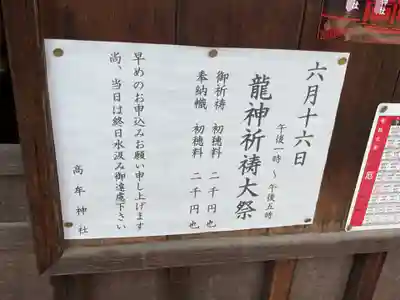 六月十六日
午後一時 〜 午後五時
龍神祈祷大祭
御祈祷 初穂料 二千円也
奉納幟 初穂料 二千円也
早めのお申込みお願い申し上げます
尚、当日は終日水汲み御遠慮下さい
高牟神社